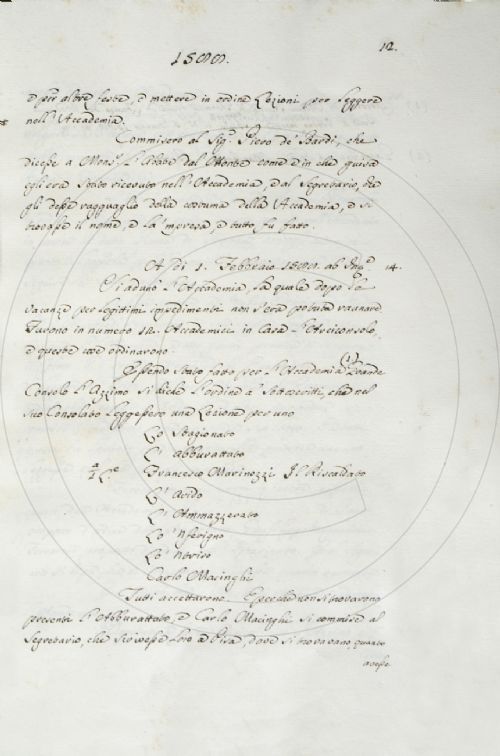 12.
1588.
e per altre feste, e mettere in ordine Lezioni per leggere
nell'Accademia.
Commisero al Sig.r Piero de' Bardi, che
dicesse a Mons.r l'Abate dal Monte come e in che guisa
egli era stato ricevuto nell'Accademia, e al Segretario, che
gli desse ragguaglio della costuma della Accademia, e si
trovasse il nome, e la 'mpresa, e tutto fu fatto.
A dì 1. Febbraio 1588. ab Inc.e 14.
Si adunò l'Accademia, la quale dopo le
vacanze per legittimi impedimenti non s'era potuta raunare.
Furono in numero 12. Accademici in Casa l'Arciconsolo,
e queste cose ordinarono.
Essendo stato fatto per l'Accademia (1) Grande
Consolo l'Azzimo si diede l'ordine a' Sottoscritti, che nel
suo Consolato leggessero una Lezione per uno
Lo Stagionato
L'Abburattato
Francesco Marinozzi Il Riscaldato
L'Arido
L'Ammazzerato
Lo 'Nferigno
Lo 'Ntriso
Carlo Macinghi
Tutti accettarono. E perchè non si trovarono
presenti l'Abburattato, e Carlo Macinghi si commise al
Segretario, che scrivesse loro a Pisa, dove si trovavano, quanto
avesse